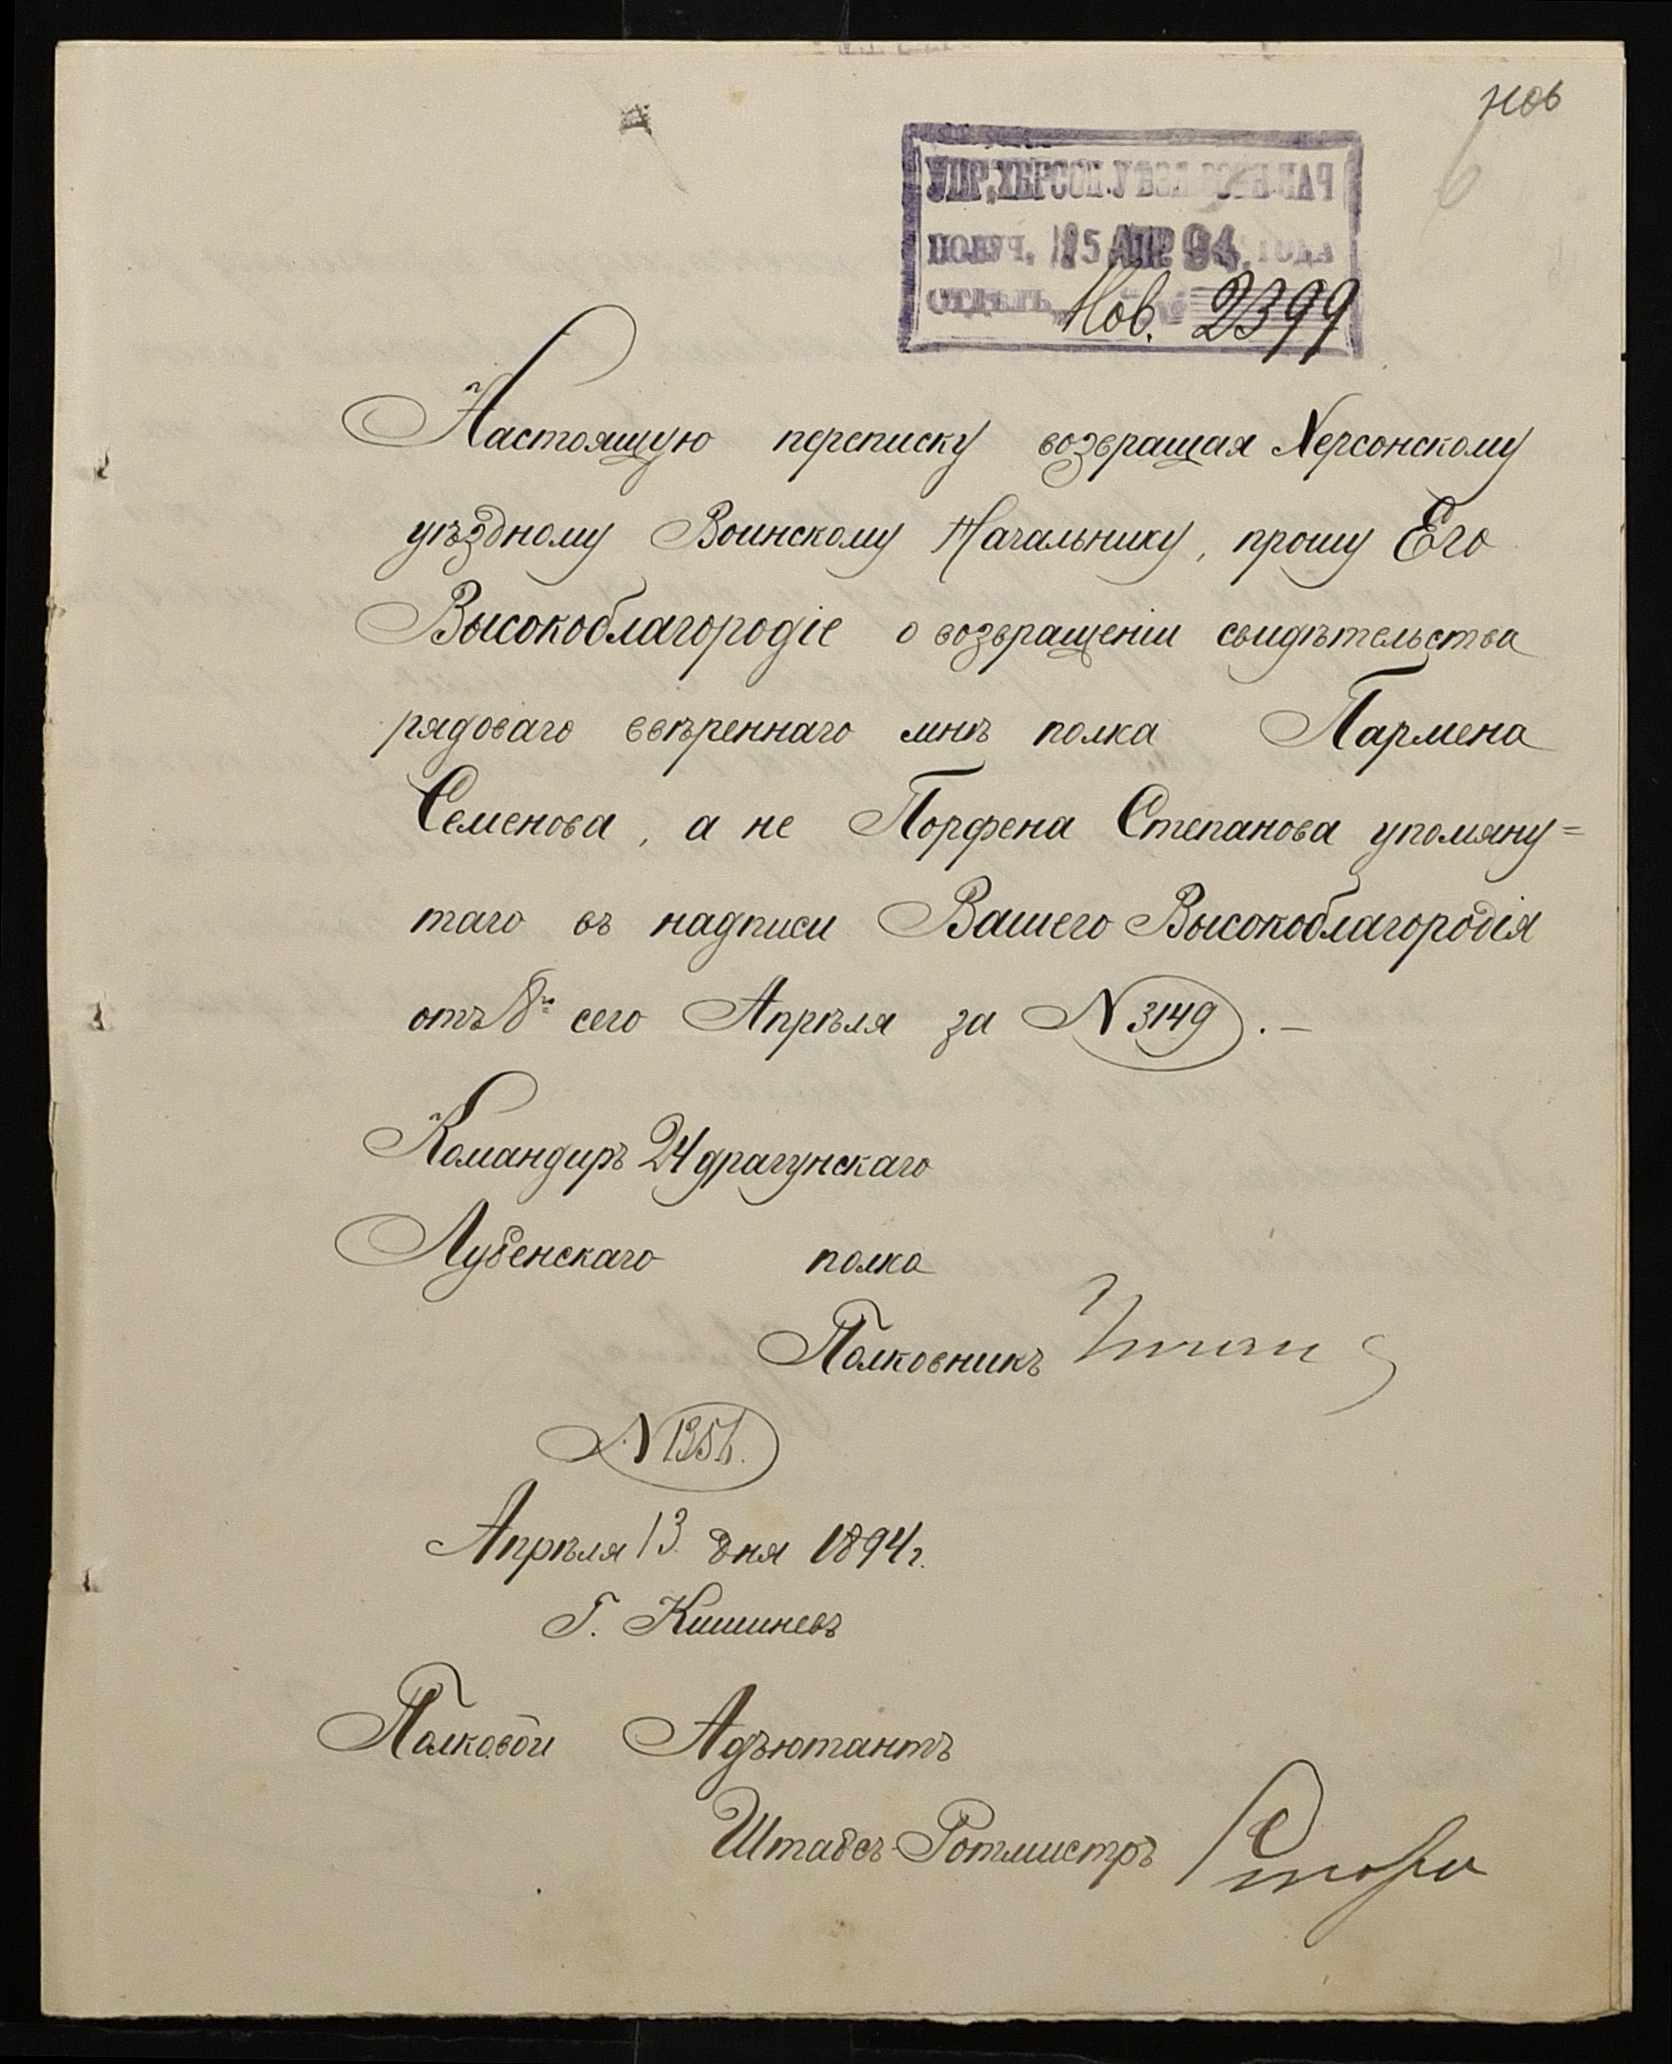 Нов
6
УПР. ХЕРСОН. УѢЗД. ВОИН. НАЧ
ПОЛУЧ. 15 АПР. 94 ГОДА
ОТДѢЛЪ Нов. № 2399
Настоящую переписку возвращая Херсонскому
уѣздному Воинскому Начальнику, прошу Его
Высокоблагородіе о возвращеніи свидѣтельства
рядоваго ввѣреннаго мнѣ полка Пармена
Семенова, а не Порфена Степанова упомяну=
таго въ надписи Вашего Высокоблагородія
отъ 8го сего Апрѣля за N 3149.–
Командиръ 24 драгунскаго
Лубенскаго полка
Полковникъ
N 1356.
Апрѣля 13 дня 1894 г.
Г. Кишиневъ
Полковой Адъютантъ
Штабсъ-Ротмистръ